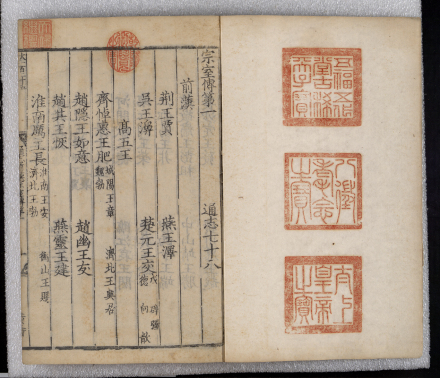 五福五代堂古稀天子寶
八徵耄念之寶
太上皇帝之寶
宗室傳第一 通志七十八
前漢
荊王賈 燕王澤
吳王濞 楚元王交
高五王
齊悼惠王肥 城陽王章 濟北王興居
趙隱王如意 趙幽王友
趙共王恢 燕靈王建
淮南厲王長 淮南王安 衡山王賜 濟北王勃